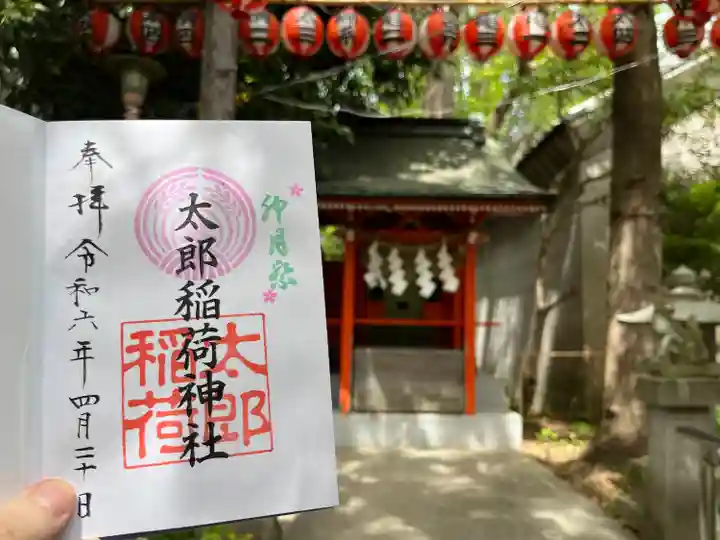 卯月祭
太郎稲荷神社
太郎
稲荷
奉拝 令和六年 四月二十日